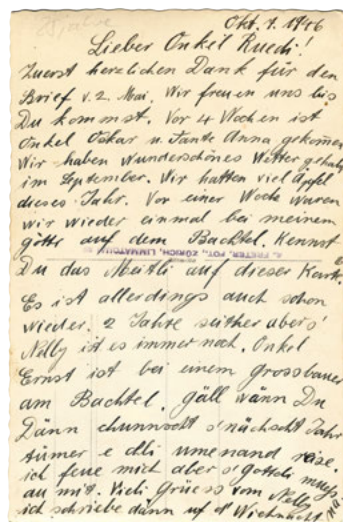 25 Jahre
Okt. 7. 1946
Lieber Onkel Ruedi!
Zuerst herzlichen Dank für den
Brief v. 2. Mai. Wir freuen uns bis
Du kommst. Vor 4 Wochen ist
Onkel Oskar u. Tante Anna gekommen
Wir haben wunderschönes Wetter gehabt
im September. Wir hatten viel Äpfel
dieses Jahr. Vor einer Woche waren
wir wieder einmal bei meinem
götti auf dem Bachtel. Kennst
PRETER, FOT., ZÜRICH, LIMMATQUAI
Du das Meitli auf dieser Karte.
Es ist allerdings auch schon
wieder. 2 Jahre seither aber s'
Nelly ist es immer noch. Onkel
Ernst ist bei einem grossbauer
am Bachtel. gäll wänn Du
Dänn chunnscht s'nächscht Jahr
tümer e chli umenand reise.
ich freue mich aber s'gotteli muess
au mit. Vieli Grüess vom Nelly
ich schriebe dann uf d'Wiehnacht